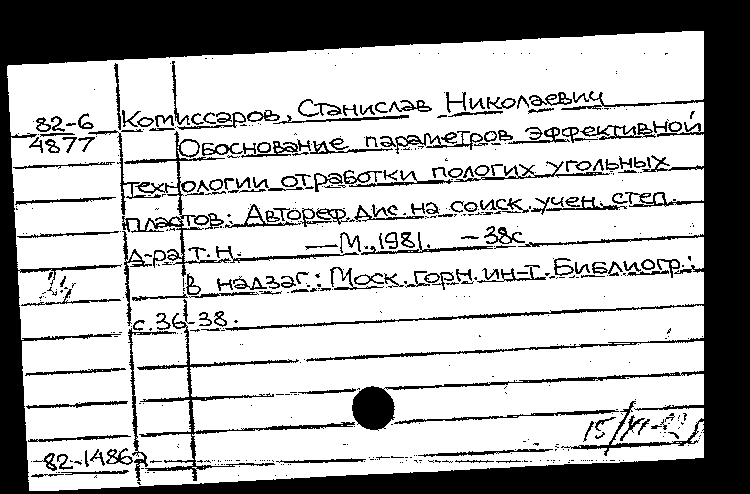 82-6 Комиссаров, Станислав Николаевич
4877 Обоснование параметров эффективной
технологии отработки пологих угольных
пластов: Автореф. дис. на соиск. учен. степ.
д-ра т. н. — М., 1981. — 38с.
24 В надзаг.: Моск. горн. ин-т. Библиогр.:
с. 36-38.
15/XI-82
82-14862